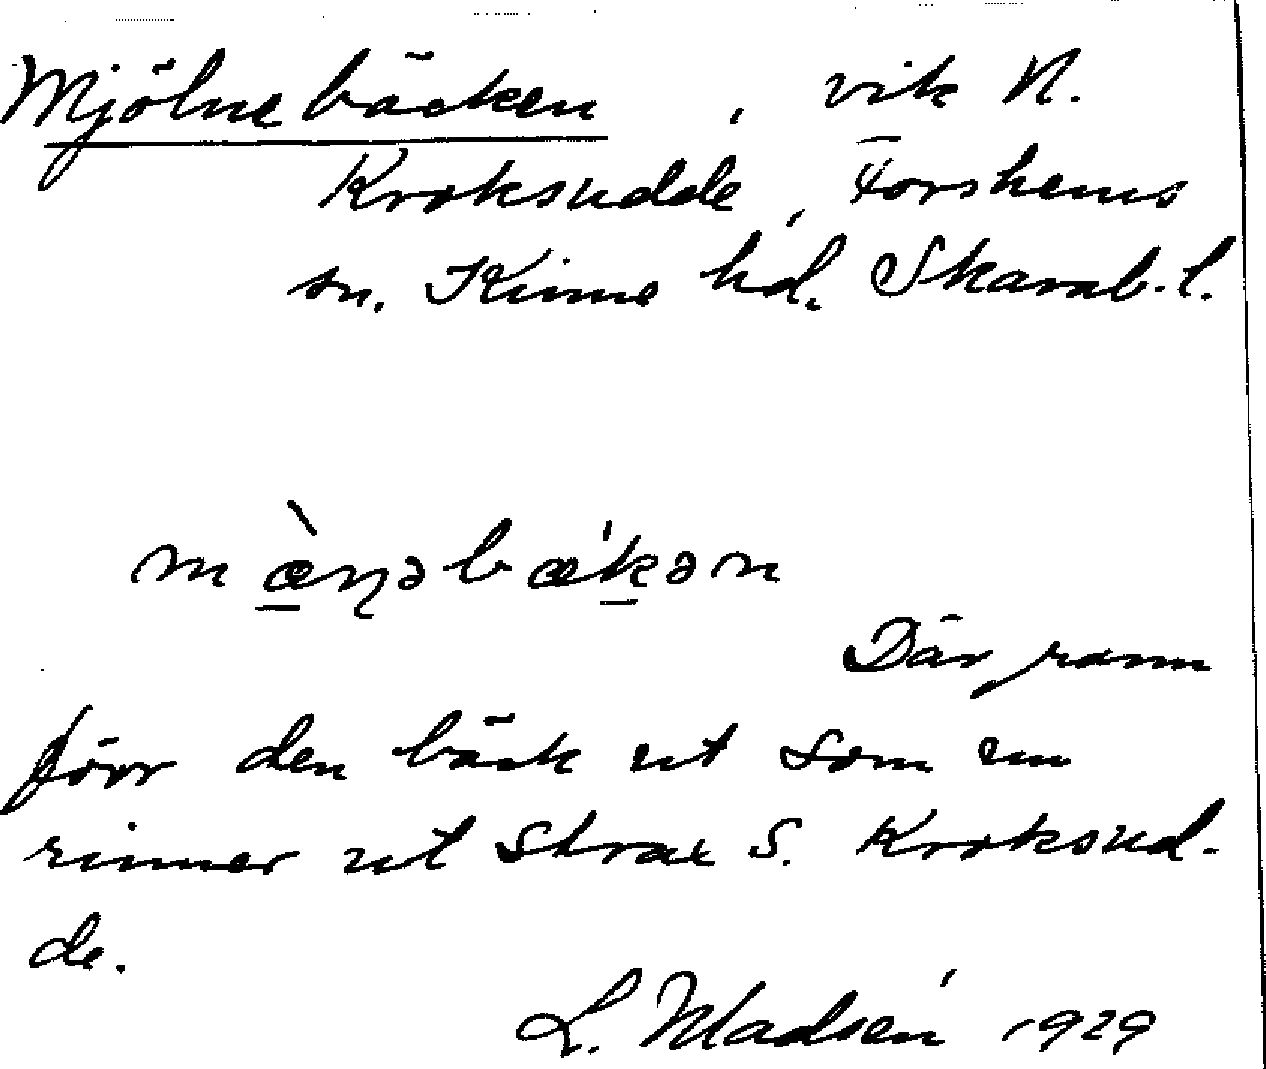 Mjölnebäcken, vik N.
Kroksudde, Forshems
sn. Kinne hd. Skarab. l.
mæ̀ɳəbækən
Där rann
förr den bäck ut som nu
rinner ut strax S. Kroksud-
de.
L. Madsén 1929